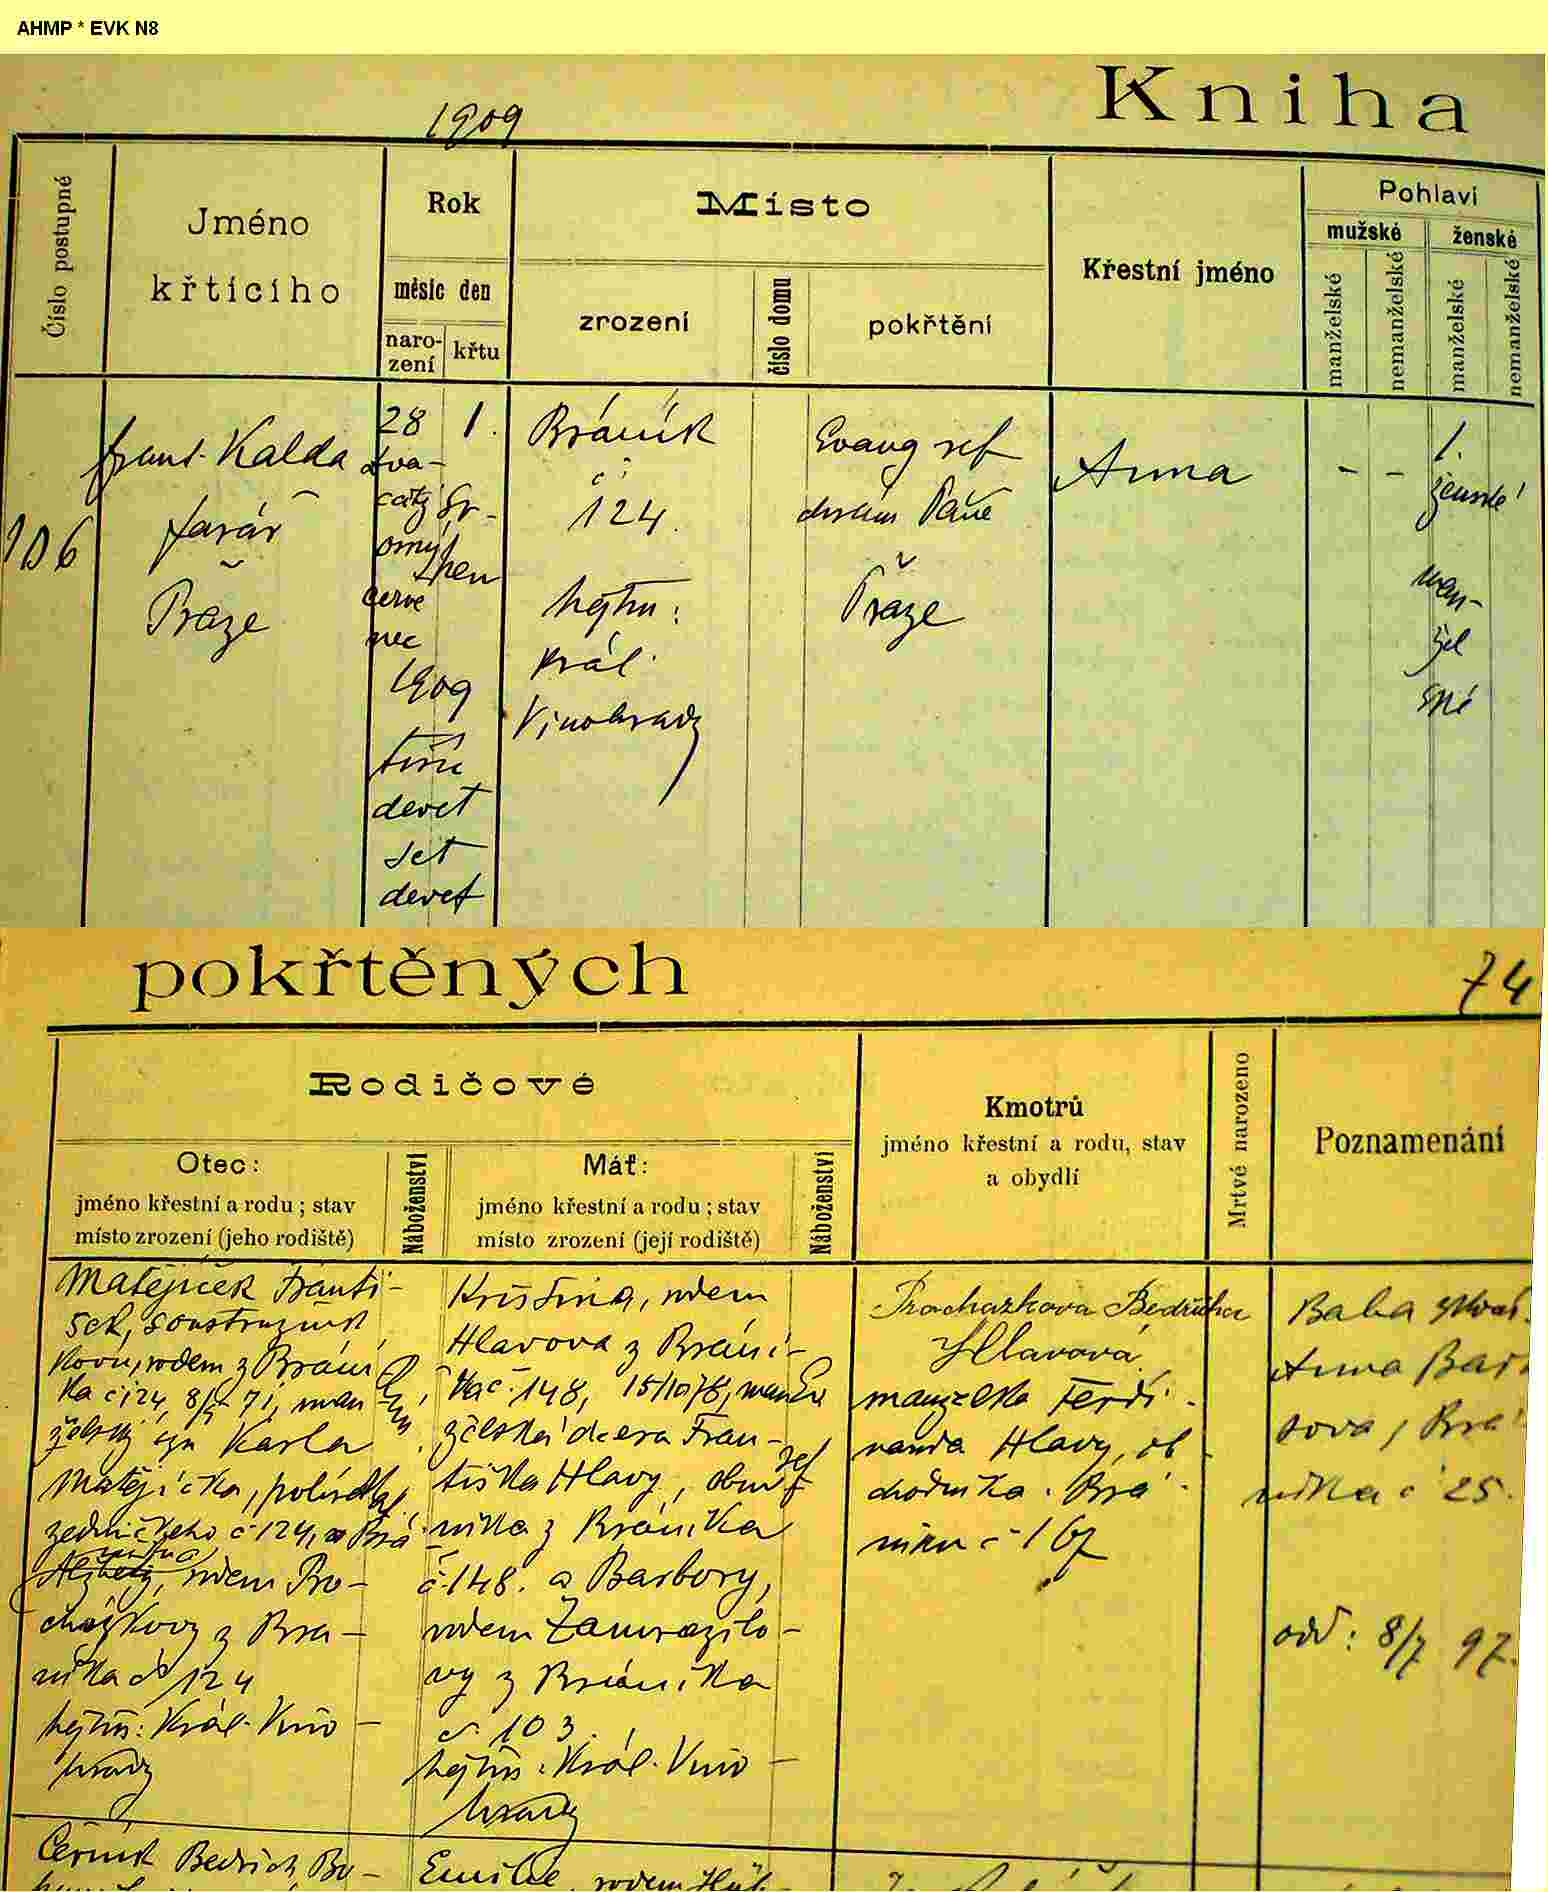 AHMP * EVK N8
Kniha
1909
Číslo postupné
Jméno
křtícího
Rok
měsíc den
naro-
zení
křtu
Místo
zrození
číslo domu
pokřtění
Křestní jméno
Pohlaví
mužské
ženské
manželské
nemanželské
manželské
nemanželské
106
Frant. Kalda
farář
Praze
28
dva-
cátý
osmý
červe
nec
1909
tisíc
devět
set
devět
1.
Sr-
pen
Bráník
č.
124.
hejtm:
Král.
Vinohrady
Evang ref
chrám Páně
Praze
Anna
- -
1.
ženské
man-
žel
ské
pokřtěných
74
Rodičové
Otec:
jméno křestní a rodu; stav
místo zrození (jeho rodiště)
Náboženství
Máť:
jméno křestní a rodu; stav
místo zrození (její rodiště)
Náboženství
Kmotrů
jméno křestní a rodu, stav
a obydlí
Mrtvé narozeno
Poznamenání
Matějíček Franti-
šek, soustružník
kovů, rodem z Bráni
ka č 124, 8/5 71, man
želský syn Karla
Matějíčka,
zednického č 124, a
rodem Pro-
cházkovy z Brá-
níka č 124
hejtm: Král. Vino-
hrady
Kristina, rodem
Hlavova z Bráni-
ka č. 148, 15/10 78, man
želská dcera Fran-
tiška Hlavy,
níka z Bráníka
č. 148. a Barbory,
rodem Zamrazilo-
vy z Bráníka
č. 103.
hejtm: Král. Vino-
hrady
ref
Procházkova Bedřiška
Hlavová
manželka Ferdi-
nanda Hlavy, ob-
chodníka. Brá-
níku č 167
Baba zkouš.
Anna Bar
sova, Brá
níka č 25.
odd: 8/7 97.
Černík Bedřich Bo-
Emilie, rodem